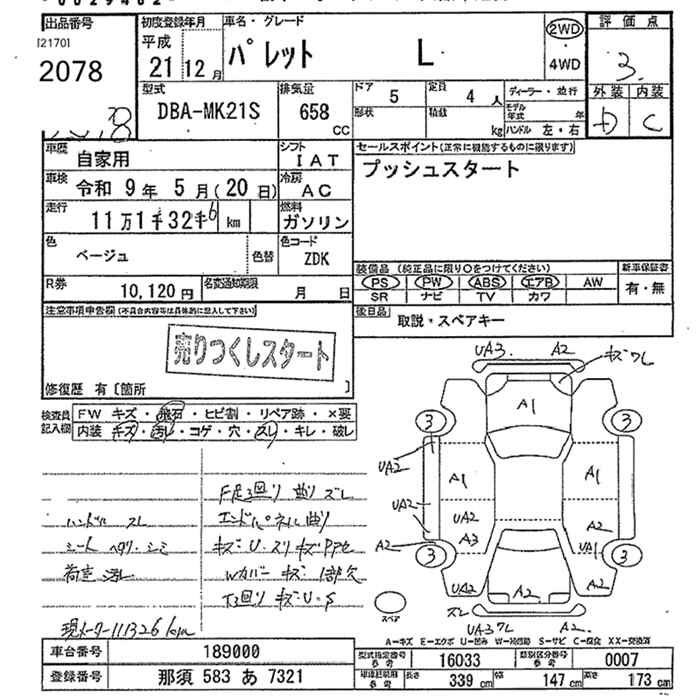 出品番号
[2170]
2078
初度登録年月
平成
21年12月
車名・グレード
パレット L
2WD
・
4WD
評価点
3.
外装 内装
D C
型式
DBA-MK21S
排気量
658
CC
ドア
5
定員
4人
形状
積載
kg
ディーラー・並行
モデル年式 年
ハンドル 左・右
車歴
自家用
シフト
IAT
車検
令和 9年 5月(20日)
冷房
AC
走行
11万1千326 km
燃料
ガソリン
色
ベージュ
色替
色コード
ZDK
R券
10,120円
名変通知期限
月 日
セールスポイント(正常に機能するものに限ります)
プッシュスタート
装備品 (純正品に限り○をつけてください)
PS PW ABS エアB AW
SR ナビ TV カワ
新車保証書
有・無
後日品
取説・スペアキー
注意事項申告欄(不具合内容等は具体的に記入して下さい)
売りつくしスタート
修復歴 有〔箇所 〕
検査員
記入欄
FW キズ・飛石・ヒビ割・リペア跡・×要
内装 キズ・汚レ・コゲ・穴・スレ・キレ・破レ
ハンドル スレ
シート ヘタリ・シミ
荷室 汚レ
現メーター111326km
F足廻り 曲り ズレ
エンドパネル曲り
キズ・U・スリキズ
Wカバー キズ 1部欠
下廻り キズ・U・S
UA3. A2 キズワレ
A1
3 3
UA2
A1 A1
UA2
UA2
A3
A2
UA1
A2
3 3
UA2 A2
スペア
ズレ
UA3ワレ A2.
A-キズ E-エクボ U-凹み W-補修跡 S-サビ C-腐食 XX-交換済
車台番号
189000
登録番号
那須 583 あ 7321
型式指定番号
参考
16033
類別区分番号
参考
0007
車検証記載
参考
長さ 339 cm
幅 147 cm
高さ 173 cm